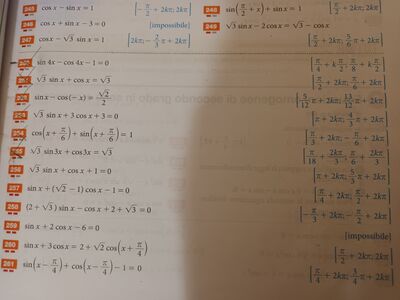 245 cos x − sin x = 1 [−π/2 + 2kπ; 2kπ]
246 cos x + sin x − 3 = 0 [impossibile]
247 cos x − √3 sin x = 1 [2kπ; −2/3 π + 2kπ]
248 sin(π/2 + x) + sin x = 1 [π/2 + 2kπ; 2kπ]
249 √3 sin x − 2cos x = √3 − cos x [π/2 + 2kπ; 5/6 π + 2kπ]
sin 4x − cos 4x − 1 = 0 [π/4 + k π/2; π/8 + k π/2]
√3 sin x + cos x = √3 [π/2 + 2kπ; π/6 + 2kπ]
sin x − cos(−x) = √2/2 [5/12 π + 2kπ; 13/12 π + 2kπ]
√3 sin x + 3 cos x + 3 = 0 [π + 2kπ; 4/3 π + 2kπ]
254 cos(x + π/6) + sin(x + π/6) = 1 [π/3 + 2kπ; −π/6 + 2kπ]
255 √3 sin 3x + cos 3x = √3 [π/18 + 2kπ/3; π/6 + 2kπ/3]
256 √3 sin x + cos x + 1 = 0 [π + 2kπ; 5/3 π + 2kπ]
257 sin x + (√2 − 1) cos x − 1 = 0 [π/4 + 2kπ; π/2 + 2kπ]
258 (2 + √3) sin x − cos x + 2 + √3 = 0 [−π/3 + 2kπ; −π/2 + 2kπ]
259 sin x + 2 cos x − 6 = 0 [impossibile]
260 sin x + 3 cos x = 2 + √2 cos(x + π/4) [π/2 + 2kπ; 2kπ]
261 sin(x − π/4) + cos(x − π/4) − 1 = 0 [π/4 + 2kπ; 3/4 π + 2kπ]